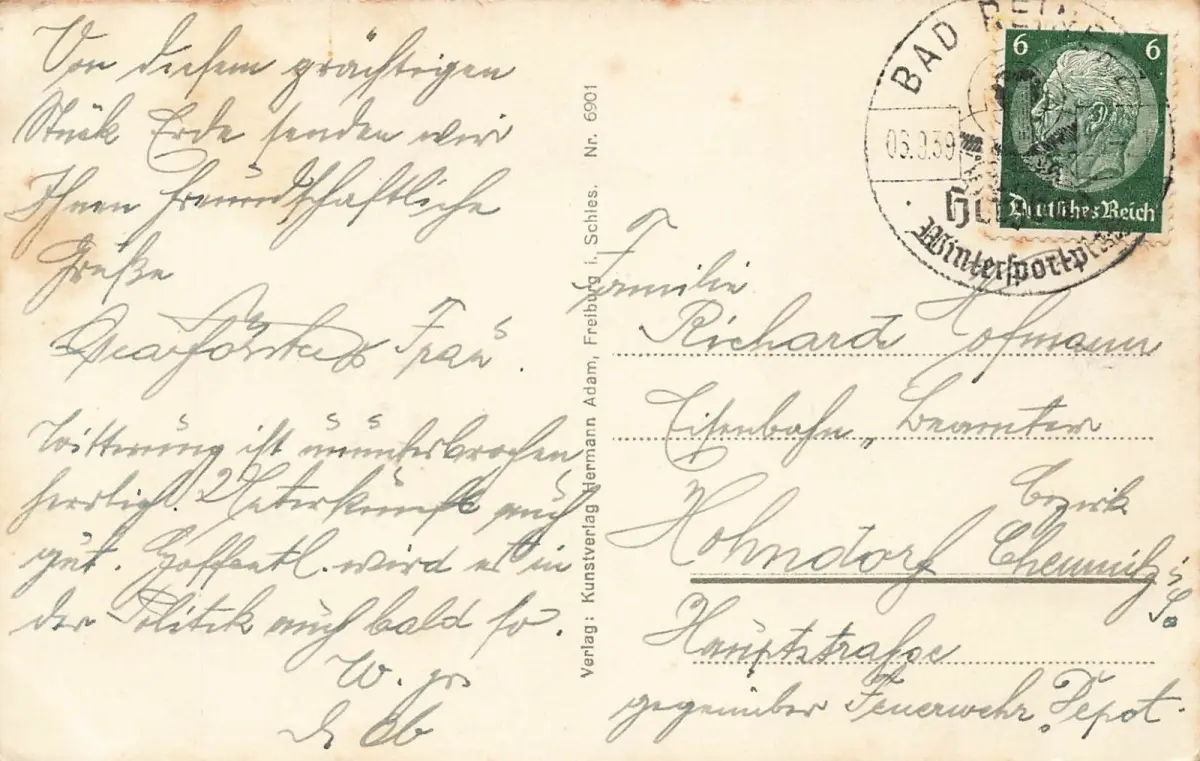 Von diesem prächtigen
Stück Erde senden wir
Ihnen freundschaftliche
Grüße
Frau.
Witterung ist ununterbrochen
herrlich. Unterkunft auch
gut. Hoffentl. wird es in
der Politik auch bald so.
W. gr.
d. Ob
Verlag: Kunstverlag Hermann Adam, Freiburg i. Schles. Nr. 6901
BAD REINERZ
03.8.39
Wintersportplatz
6 6
Deutsches Reich
Familie
Richard Hofmann
Eisenbahn-Beamter
Bezirk
Hohndorf Chemnitz i. Sa
Hauptstrasse
gegenüber Feuerwehr-Depot.